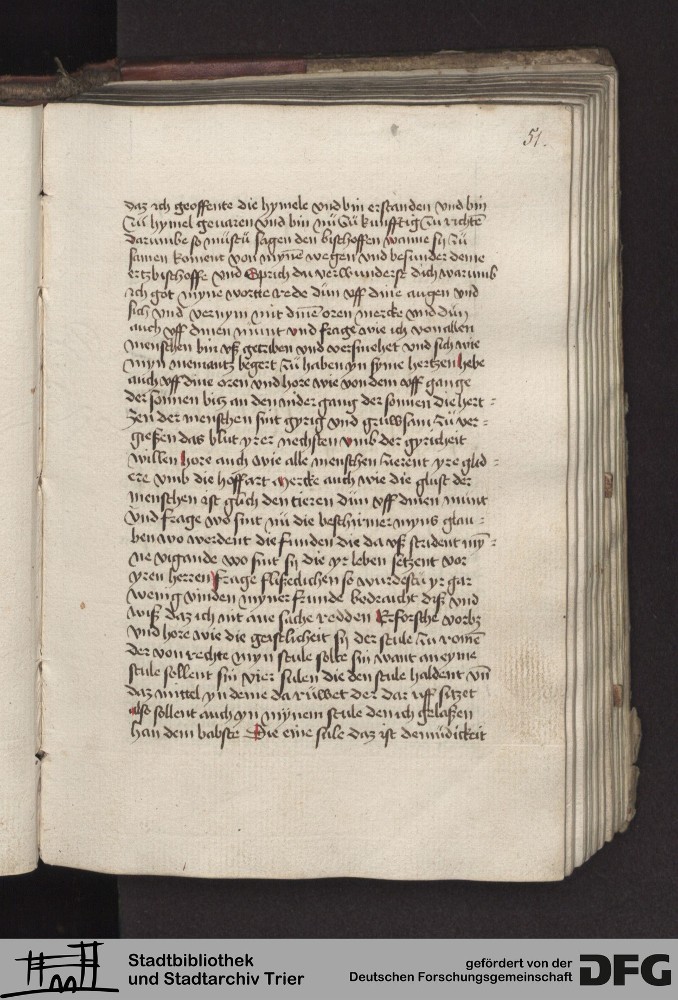 51.
daz ich geoffente die hymele vnd bin erstanden vnd bin
zü hymel geuaren vnd bin nü zü kunfftig zü richtē
darumbe so müstü sagen den bischoffen wanne sy zü
samen koment von mynē wegen vnd besunder deme
ertzbischoffe vnd Sprich du verwunderst dich warumb
ich got myne wortte rede dün vff dine augen vnd
sich vnd vernym mit dinē oren mercke vnd dün
auch vff dinen münt vnd frage wie ich von allen
menschen bin vß getriben vnd versmehet vnd sich wie
myn niemantz begert zü haben yn syme hertzen hebe
auch vff dine oren vnd hore wie von dem vff gange
der sonnen bitz an den nider gang der sonnen die hert-
zen der menschen sint gyrig vnd gruwsam zü ver-
gießen das blut yrer nechsten vmb der gyricheit
willen hore auch wie alle menschen zierent yre glid-
ere vmb die hoffart mercke auch wie die glust der
menschen ist glich den tieren dün vff dinen münt
vnd frage wo sint nü die beschirmer myns glau-
ben wo werdent die funden die da vß strident my-
ne vigande wo sint sy die yr leben setzent vor
yren herren frage flißeclichen so wurdestu yr gar
wenig vinden myner frunde bedracht diß vnd
wiß daz ich nit ane sache redden Erforsche vorbz
vnd hore wie die geistlicheit sy der stule zü romē
der von rechte myn stule solte sin want an eyme
stule sollent sin vier sulen die den stule haldent vn̄
daz mittel yn deme da rüwet der dar uff sitzet
also sollent auch yn mynem stule den ich gelaßen
han dem babste Die eine sule daz ist demüdickeit
Stadtbibliothek
und Stadtarchiv Trier
gefördert von der
Deutschen Forschungsgemeinschaft
DFG